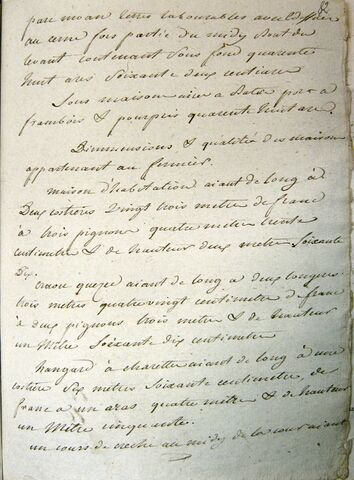 82
parc moan terres labourables avec
au cerne fois partie du midy Dont du
levant contenant Sous fond quarente
huit ares Soixante deux centiare
Sous maison aire a Batre porte a
framboir & pourpris quarente huit are.
Dimmensions & qualités des maison
appartenant au fermier.
maison D'habitation aiant de long à
Deux costieres Vingt trois metre de franc
à trois pignons quatre metre trente
centimetre & de hauteur deux metre Soixante
Dix.
Creche aiant de long a deux longeres
trois metres quatrevingt centimetre de franc
a deux pignons trois metre & de hauteur
un Mêtre Soixante dix centimetre
hangard à charette aiant de long à une
costiere Six metres Soixante centimetre, de
franc a un aras quatre mêtre & de hauteur
un Mêtre cinquante.
un cours de creche au midy de la cour aiant